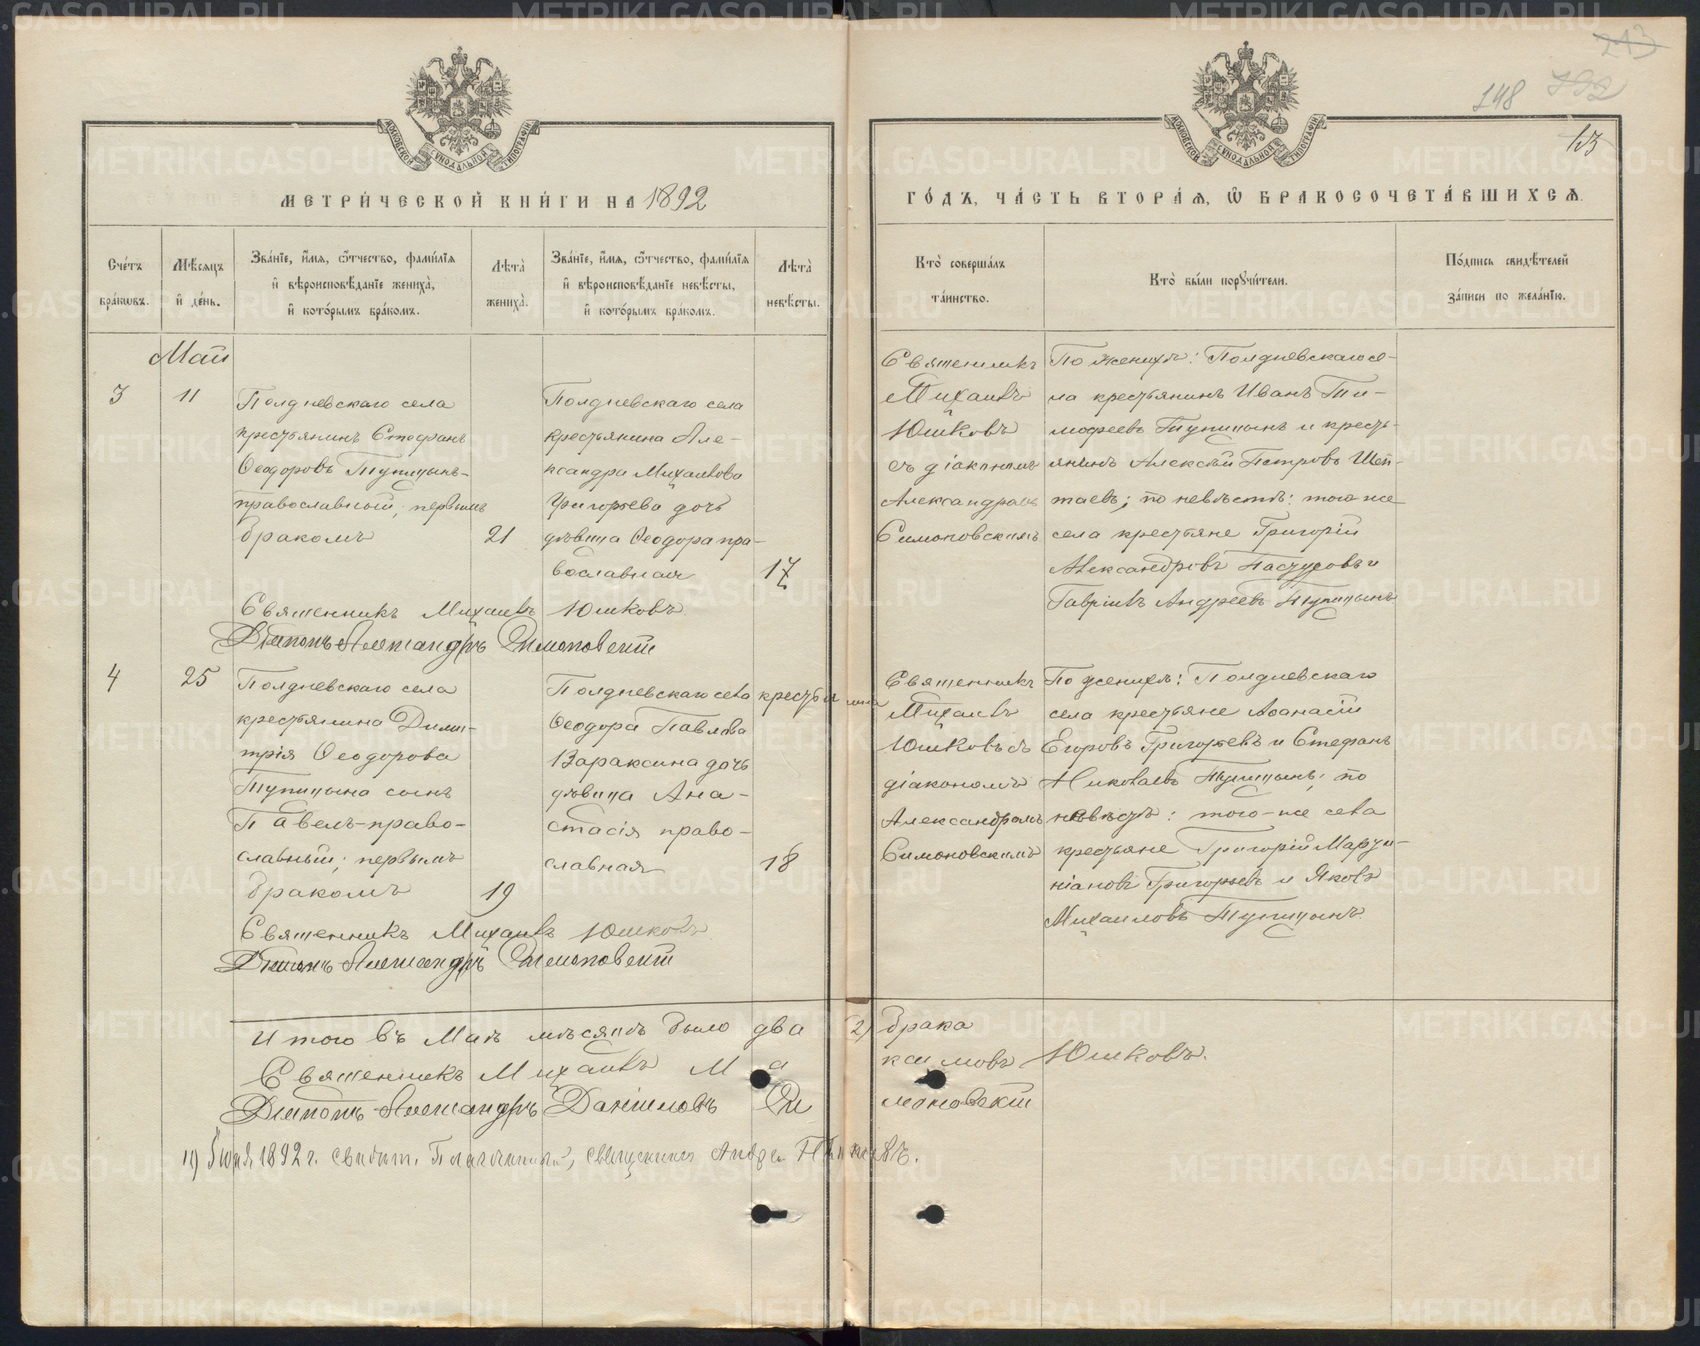 МЕТРИ́ЧЕСКОЙ КНИ́ГИ НА 1892
ГО́ДЪ, ЧА́СТЬ ВТОРА́Я, Ѿ БРАКОСОЧЕТА́ВШИХСЯ.
148
13
Сче́тъ бра́ковъ.
Мѣ́сяцъ и҆ де́нь.
Зва́нїе, и҆́мя, ѻ҆́тчество, фами́лїя
и҆ вѣроисповѣ́данїе жениха̀,
и҆ кото́рымъ бра́комъ.
Лѣ́та̀ жениха̀.
Зва́нїе, и҆́мя, ѻ҆́тчество, фами́лїя
и҆ вѣроисповѣ́данїе невѣ́сты,
и҆ кото́рымъ бра́комъ.
Лѣ́та̀ невѣ́сты.
Кто̀ соверша́лъ
та́инство.
Кто̀ бы́ли порꙋчи́тели.
По́дпись свидѣ́телей
за́писи по жела́нїю.
Май
3
11
Полдневскаго села
крестьянинъ Стефанъ
Ѳеодоровъ Тупицынъ-
православный, первымъ
бракомъ
21
Полдневскаго села
крестьянина Але-
ксандра Михаилова
Григорьева дочь
дѣвица Ѳеодора пра-
вославная
17
Священникъ
Михаилъ
Юшковъ
съ діакономъ
Александромъ
Симоновскимъ
По женихѣ: Полдневскаго се-
ла крестьянинъ Иванъ Ти-
мофеевъ Тупицынъ и кресть-
янинъ Алексѣй Петровъ Шеп-
таевъ; по невѣстѣ: того-же
села крестьяне Григорій
Александровъ Пастуховъ и
Гавріилъ Андреевъ Тупицынъ
Священникъ Михаилъ Юшковъ
Діаконъ Александръ Симоновскій
4
25
Полдневскаго села
крестьянина Дими-
трія Ѳеодорова
Тупицына сынъ
Павелъ-право-
славный; первымъ
бракомъ
19
Полдневскаго села крестьянина
Ѳеодора Павлова
Вараксина дочь
дѣвица Ана-
стасія право-
славная
18
Священникъ
Михаилъ
Юшковъ съ
діакономъ
Александромъ
Симоновскимъ
По женихѣ: Полдневскаго
села крестьяне Аѳанасій
Егоровъ Григорьевъ и Стефанъ
Николаевъ Тупицынъ; по
невѣстѣ: того-же села
крестьяне Григорій Марти-
ніановъ Григорьевъ и Яковъ
Михаиловъ Тупицынъ.
Священникъ Михаилъ Юшковъ
Діаконъ Александръ Симоновскій
Итого въ Маѣ мѣсяцѣ было два (2) брака
Священникъ Михаилъ Максимовъ Юшковъ.
Діаконъ Александръ Даніиловъ Симоновскій
1892 г. Свидѣт. Благочинный, священникъ
METRIKI.GASO-URAL.RU